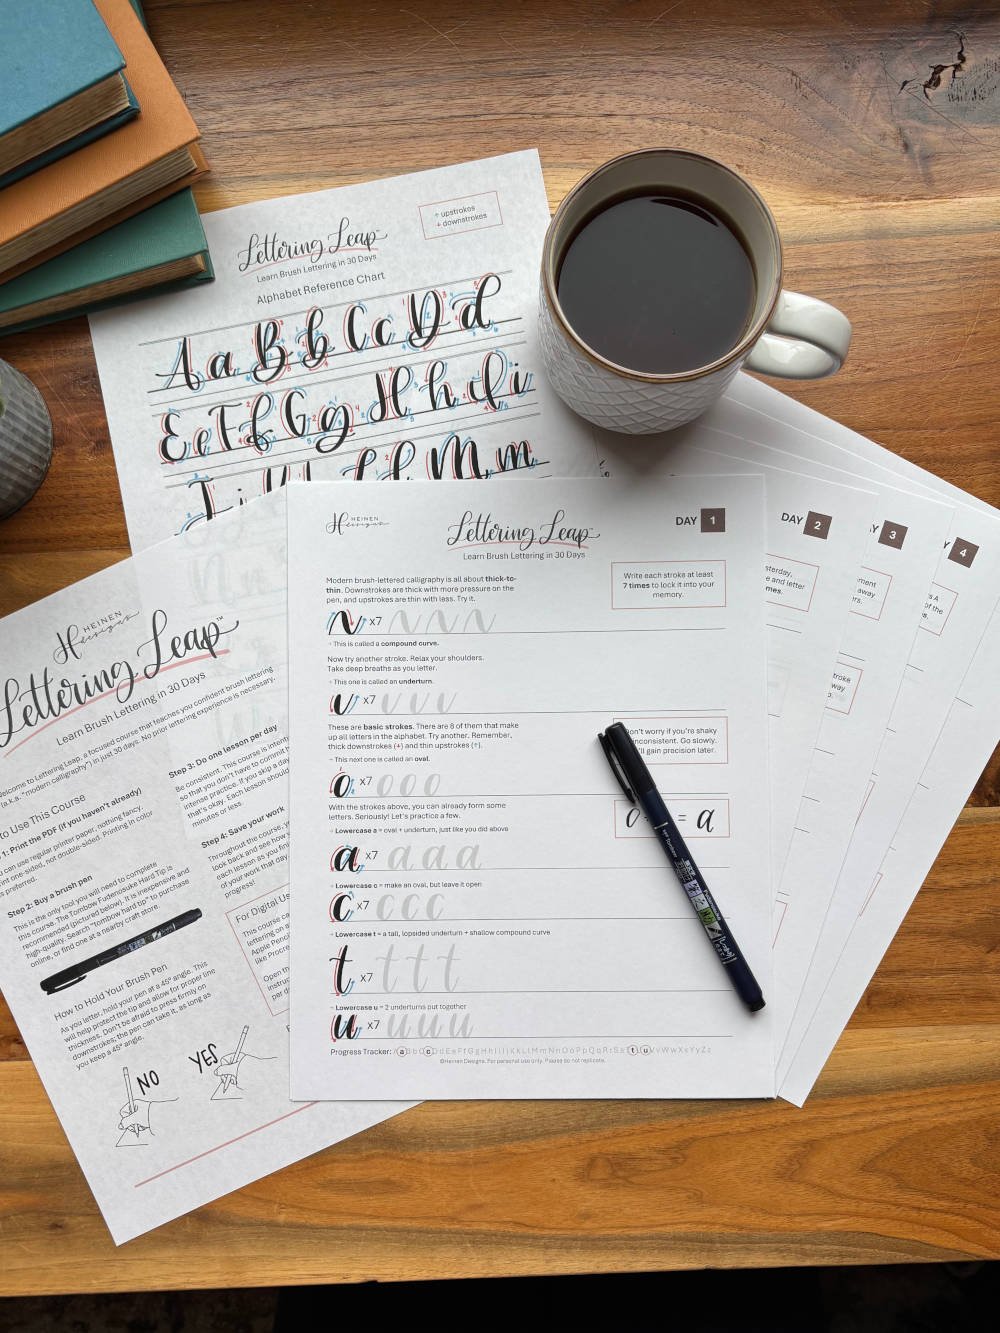 ÷ upstrokes
+ downstrokes
Lettering Leap™
Learn Brush Lettering in 30 Days
Alphabet Reference Chart
A a B b C c D d
E e F f G g H h i
M m
HEINEN
Designs
Lettering Leap™
Learn Brush Lettering in 30 Days
DAY 1
Modern brush-lettered calligraphy is all about thick-to-
thin. Downstrokes are thick with more pressure on the
pen, and upstrokes are thin with less. Try it.
Write each stroke at least
7 times to lock it into your
memory.
x7
This is called a compound curve.
Now try another stroke. Relax your shoulders.
Take deep breaths as you letter.
This one is called an underturn.
x7
These are basic strokes. There are 8 of them that make
up all letters in the alphabet. Try another. Remember,
thick downstrokes (+) and thin upstrokes (÷).
This next one is called an oval.
on't worry if you're shaky
inconsistent. Go slowly.
'll gain precision later.
x7
With the strokes above, you can already form some
letters. Seriously! Let's practice a few.
= a
Lowercase a = oval + underturn, just like you did above
a x7 a a a
Lowercase c = make an oval, but leave it open
c x7 c c c
Lowercase t = a tall, lopsided underturn + shallow compound curve
t x7 t t t
Lowercase u = 2 underturns put together
u x7 u u u
Progress Tracker:
©Heinen Designs. For personal use only. Please do not replicate.
DAY 2
sterday,
e and letter
mes.
troke
way
Y 3
ment
away
rs.
Y 4
s A
of the
s.
HEINEN
Designs
Lettering Leap™
Learn Brush Lettering in 30 Days
elcome to Lettering Leap, a focused course that teaches you confident brush lettering
(a.k.a. "modern calligraphy") in just 30 days. No prior lettering experience is necessary.
to Use This Course
1: Print the PDF (if you haven't already)
can use regular printer paper, nothing fancy.
int one-sided, not double-sided. Printing in color
s preferred.
Step 2: Buy a brush pen
This is the only tool you will need to complete
this course. The Tombow Fudenosuke Hard Tip is
recommended (pictured below). It is inexpensive and
high-quality. Search "tombow hard tip" to purchase
online, or find one at a nearby craft store.
How to Hold Your Brush Pen
As you letter, hold your pen at a 45° angle. This
will help protect the tip and allow for proper line
thickness. Don't be afraid to press firmly on
downstrokes; the pen can take it, as long as
you keep a 45° angle.
NO
YES
Step 3: Do one lesson per day
Be consistent. This course is intenti
so that you don't have to commit t
intense practice. If you skip a day
that's okay. Each lesson should
minutes or less.
Step 4: Save your work
Throughout this course, y
look back and see how y
each lesson as you finis
of your work that day
progress!
For Digital Us
This course ca
lettering on a
Apple Pencil
like Procre
Open th
instruc
per d